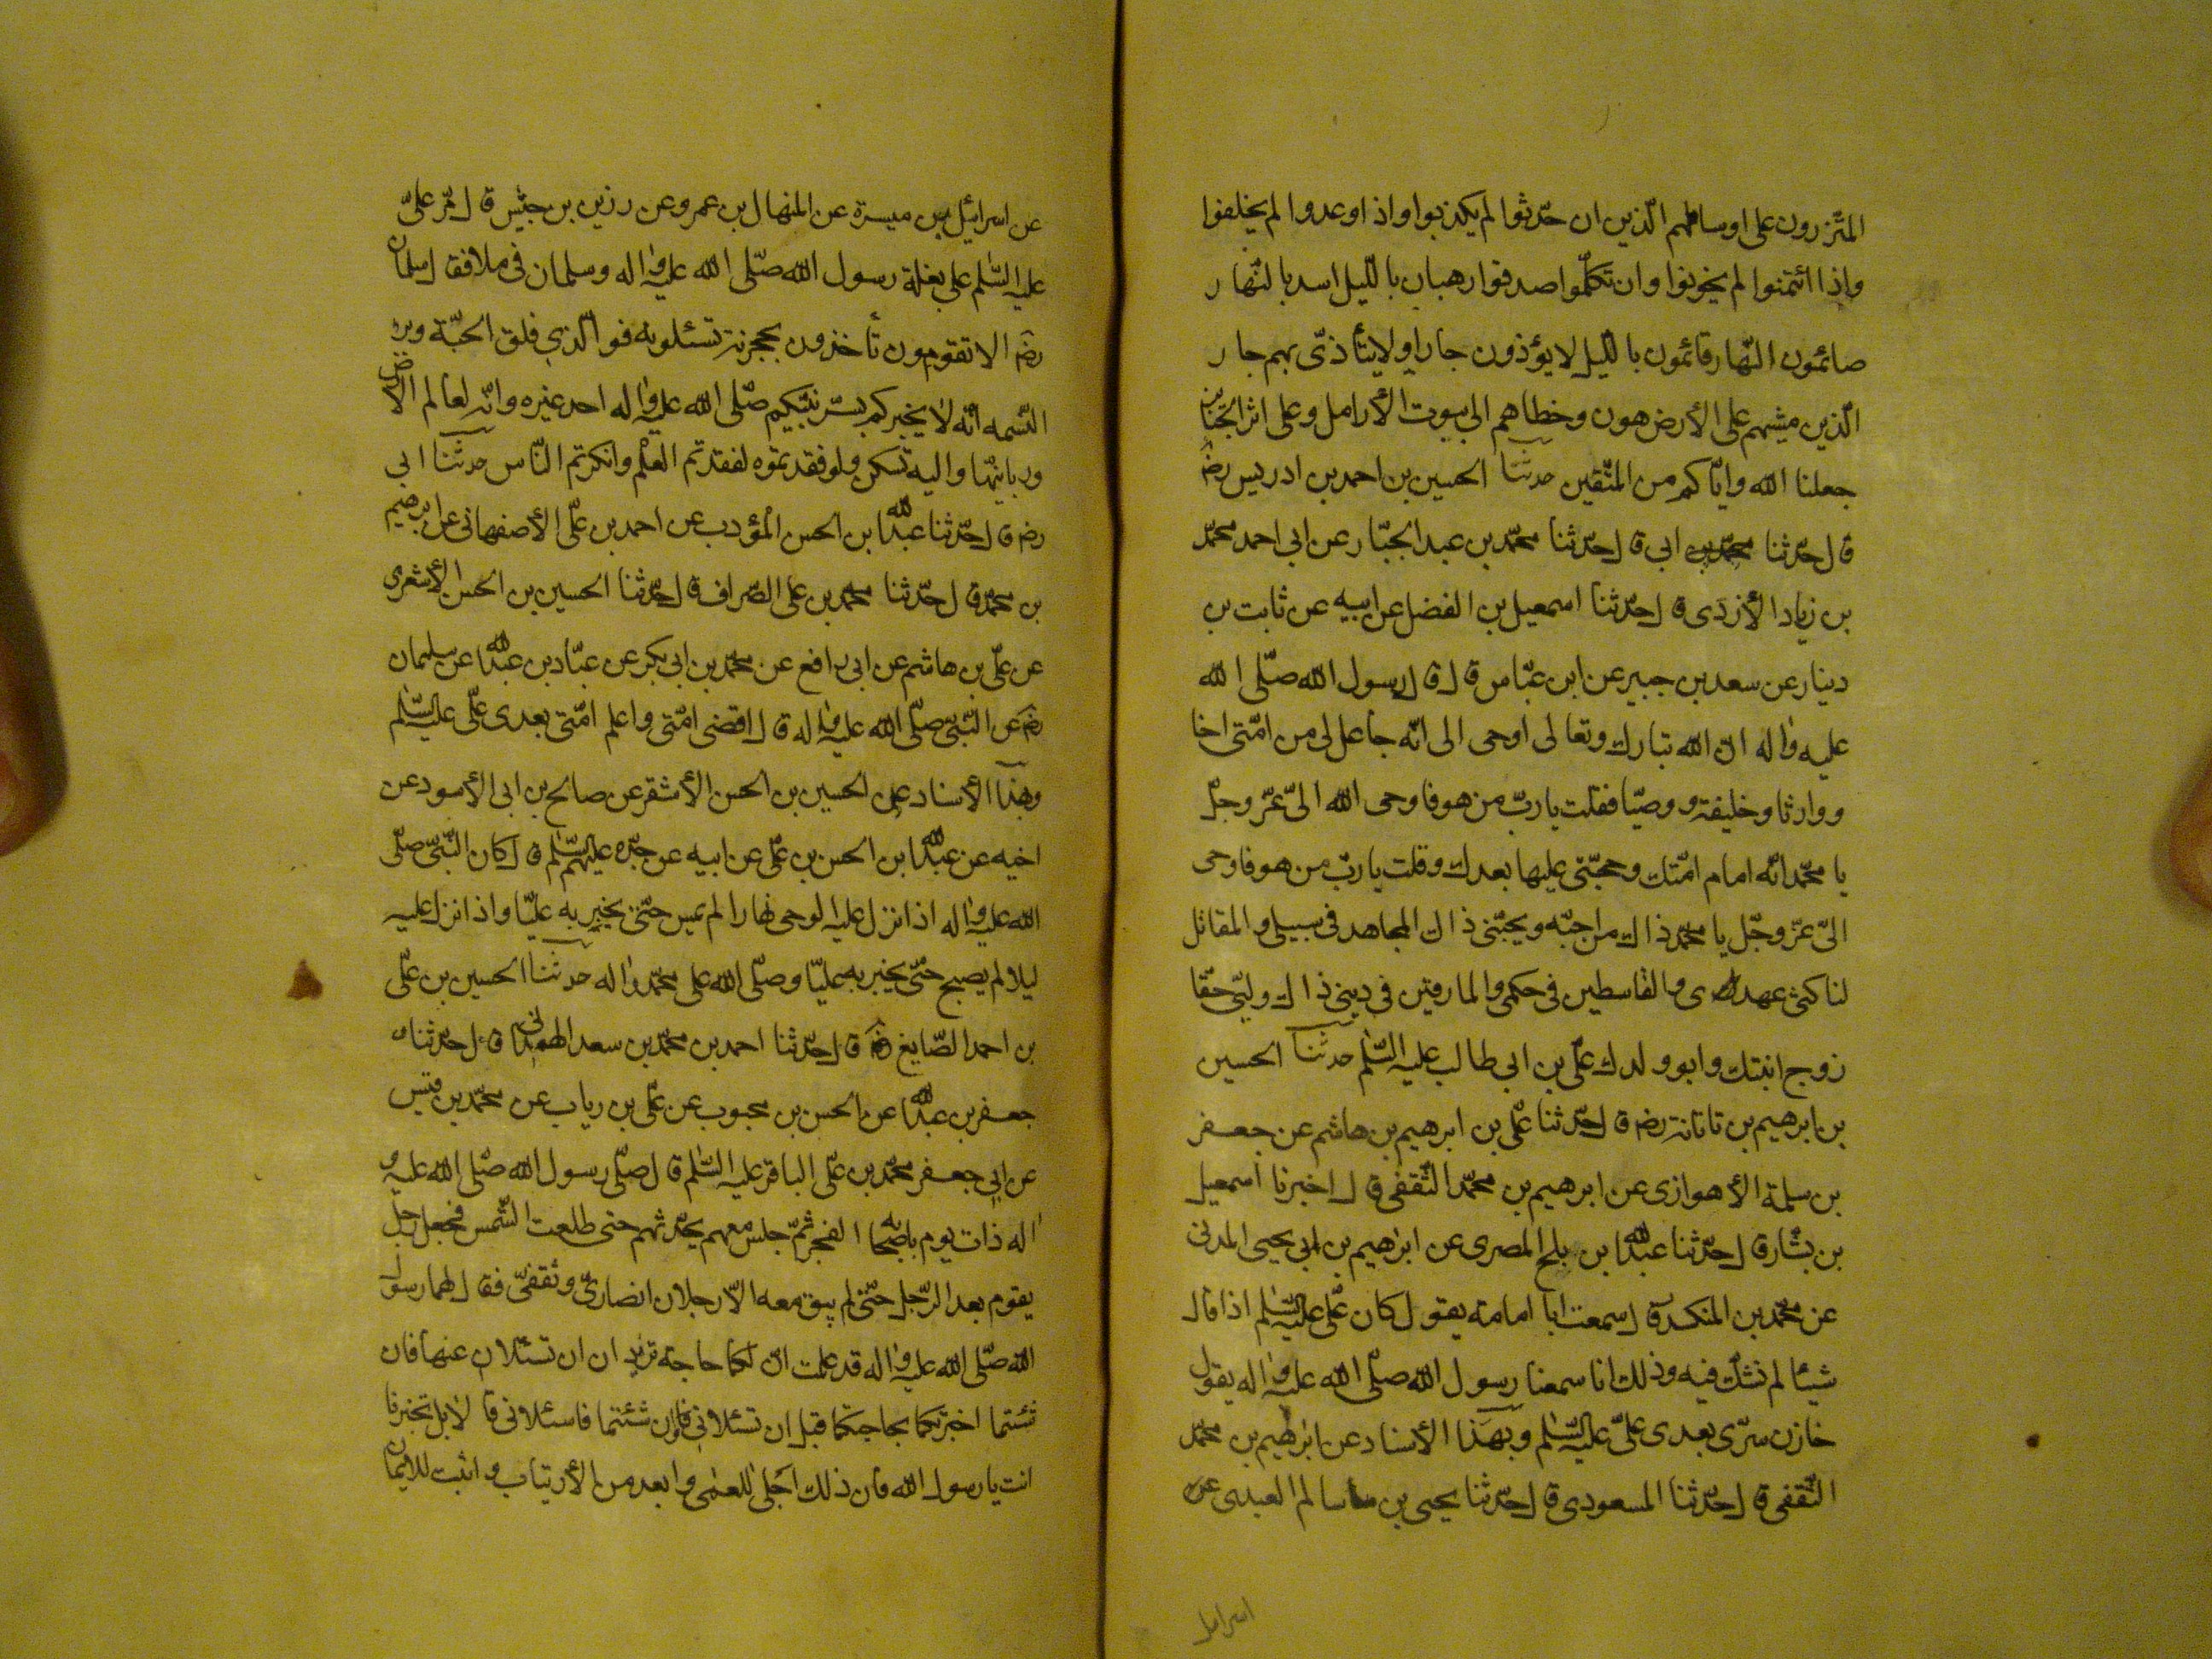 المتّزرون على اوساطهم الّذين ان حدّثوا لم يكذبوا واذا وعدوا لم يخلفوا
واذا ائتمنوا لم يخونوا وان تكلّموا صدقوا رهبان بالّليل اسد بالنّهار
صائمون النّهار قائمون بالّليل لا يؤذون جارا ولا يتأذّى بهم جار
الّذين مشيهم على الأرض هون وخطاهم الى بيوت الأرامل وعلى اثر الجنائز
جعلنا الله وايّاكم من المتّقين حدثنا الحسين بن احمد بن ادريس رضه
قال حدّثنا ابى قال حدّثنا محمّد بن عبد الجبّار عن ابى احمد محمّد
بن زياد الأزدى قال حدّثنا اسمعيل بن الفضل عن ابيه عن ثابت بن
دينار عن سعد بن جبير عن ابن عبّاس قال قال رسول الله صلّى الله
عليه واله انّ الله تبارك وتعالى اوحى الى انّه جاعل لى من امّتى اخا
ووارثا وخليفة ووصيّا فقلت يا ربّ من هو فاوحى الله الىّ عزّ وجلّ
يا محمّد انّه امام امّتك وحجّتى عليها بعدك وقلت يا ربّ من هو فاوحى
الىّ عزّ وجّل يا محمّد ذاك من احبّه ويحبّنى ذاك المجاهد فى سبيلى والمقاتل
لناكثى عهدى والقاسطين فى حكمى والمارقين فى دينى ذاك وليّى حقّا
زوج ابنتك وابو ولدك علّى بن ابى طالب عليه السّلم حدثنا الحسين
بن ابرهيم بن تاتانة رضه قال حدّثنا علّى بن ابرهيم بن هاشم عن جعفر
بن سلمة الأهوازى عن ابرهيم بن محمّد الثّقفى قال اخبرنا اسمعيل
بن بشّار قال حدّثنا عبدالله بن بلح المصرى عن ابرهيم بن ابى يحيى المدنى
عن محمّد بن المنكدر قال سمعت ابا امامة يقول كان علّى عليه السّلم اذا قال
شيئا لم نشكّ فيه وذلك انا سمعنا رسول الله صلّى الله عليه واله يقول
خازن سرّى بعدى علىّ عليه السّلم وبهذا الأسناد عن ابرهيم بن محمّد
الثّقفى قال حدّثنا المسعودى قال حدّثنا يحيى بن سالم العبدى عن
اسرائيل
عن اسرائيل بن ميسرة عن المنهال بن عمرو عن رزين بن حبيش قال مرّ علىّ
عليه السّلم على بغلة رسول الله صلّى الله عليه واله وسلمان فى ملا فقال سلمان
رضه الا تقومون تأخذون بحجزته تسئلونه فو الّذى فلق الحبّة وبرء
النّسمه انّه لا يخبركم بسّر نبيّكم صّلى الله عليه واله احد غيره وانّه لعالم الارض
وربانيّها واليه تسكن ولو فقدتموه لفقدتم العلم وانكرتم النّاس حدثنا ابى
رضه قال حدّثنا عبدالله بن الحسن المؤدب عن احمد بن علّى الأصفهانى عن ابرهيم
بن محمّد قال حدّثنا محمّد بن على الصّراف قال حدّثنا الحسين بن الحسن الأشعرى
عن علّى بن هاشم عن ابى رافع عن محمّد بن ابى بكر عن عبّاد بن عبدالله عن سلمان
رضه عن النّبىّ صلّى الله عليه واله قال اقضى امّتى واعلم امّتى بعدى علّى عليه السّلم
وبهذا الأسناد عن الحسين بن الحسن الأشقر عن صالح بن ابى الأسود عن
اخيه عن عبدالله بن الحسن بن علّى عن ابيه عن جدّه عليهم السّلم قال كان النّبىّ صلّى
الله عليه واله اذا نزل عليه الوحى نهارا لم يمس حتّى يخبر به عليّا واذا نزل عليه
ليلا لم يصبح حتّى يخبر به عليّا وصلّى الله على محمّد واله حدثنا الحسين بن علّى
بن احمد الصّايغ رضه قال حدّثنا احمد بن محمّد بن سعد الهمدانى قال حدّثنا
جعفر بن عبدالله عن الحسن بن محبوب عن علّى بن رياب عن محمّد بن قيس
عن ابى جعفر محمّد بن علّى الباقر عليه السّلم قال صلّى رسول الله صلّى الله عليه و
اله ذات يوم باصحابه الفجر ثمّ جلس معهم يحدّثهم حتى طلعت الشّمس فجعل رجل
يقوم بعد الرّجل حتّى لم يبق معه الّا رجلان انصارىّ وثقفىّ فقال لهما رسول
الله صّلى الله عليه واله قد علمت انّ لكما حاجة تريدان ان تسئلان عنها فان
شئتما اخبرتكما بحاجتكما قبل ان تسئلانى وان شئتما فاسئلانى قالا بل تخبرنا
انت يا رسول الله فان ذلك اجلى للعمى وابعد من الأرتياب واثبت للايمان